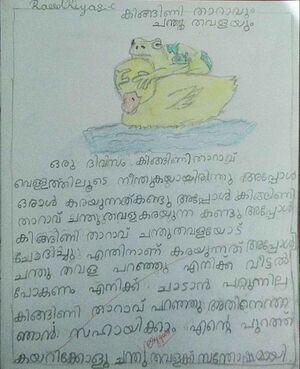 കിങ്ങിണി താറാവും
ചന്തു തവളയും
ഒരു ദിവസം കിങ്ങിണിതാറാവ്
വെള്ളത്തിലൂടെ നീന്തുകയായിരുന്നു അപ്പോൾ
ഒരാൾ കരയുന്നത്കണ്ടു അപ്പോൾ കിങ്ങിണി
താറാവ് ചന്തുതവള കരയുന്ന കണ്ടു അപ്പോൾ
കിങ്ങിണി താറാവ് ചന്തുതവളയോട്
ചോദിച്ചു എന്തിനാണ് കരയുന്നത് അപ്പോൾ
ചന്തു തവള പറഞ്ഞു എനിക്ക് വീട്ടൽ
പോകണം എനിക്ക് ചാടാൻ പറ്റുന്നില്ല
കിങ്ങിണി താറാവ് പറഞ്ഞു അതിനെന്താ
ഞാൻ സഹായിക്കാം എന്റെ പുറത്ത്
കയറിക്കോളു ചന്തു തവളക്ക് സന്തോഷമായി